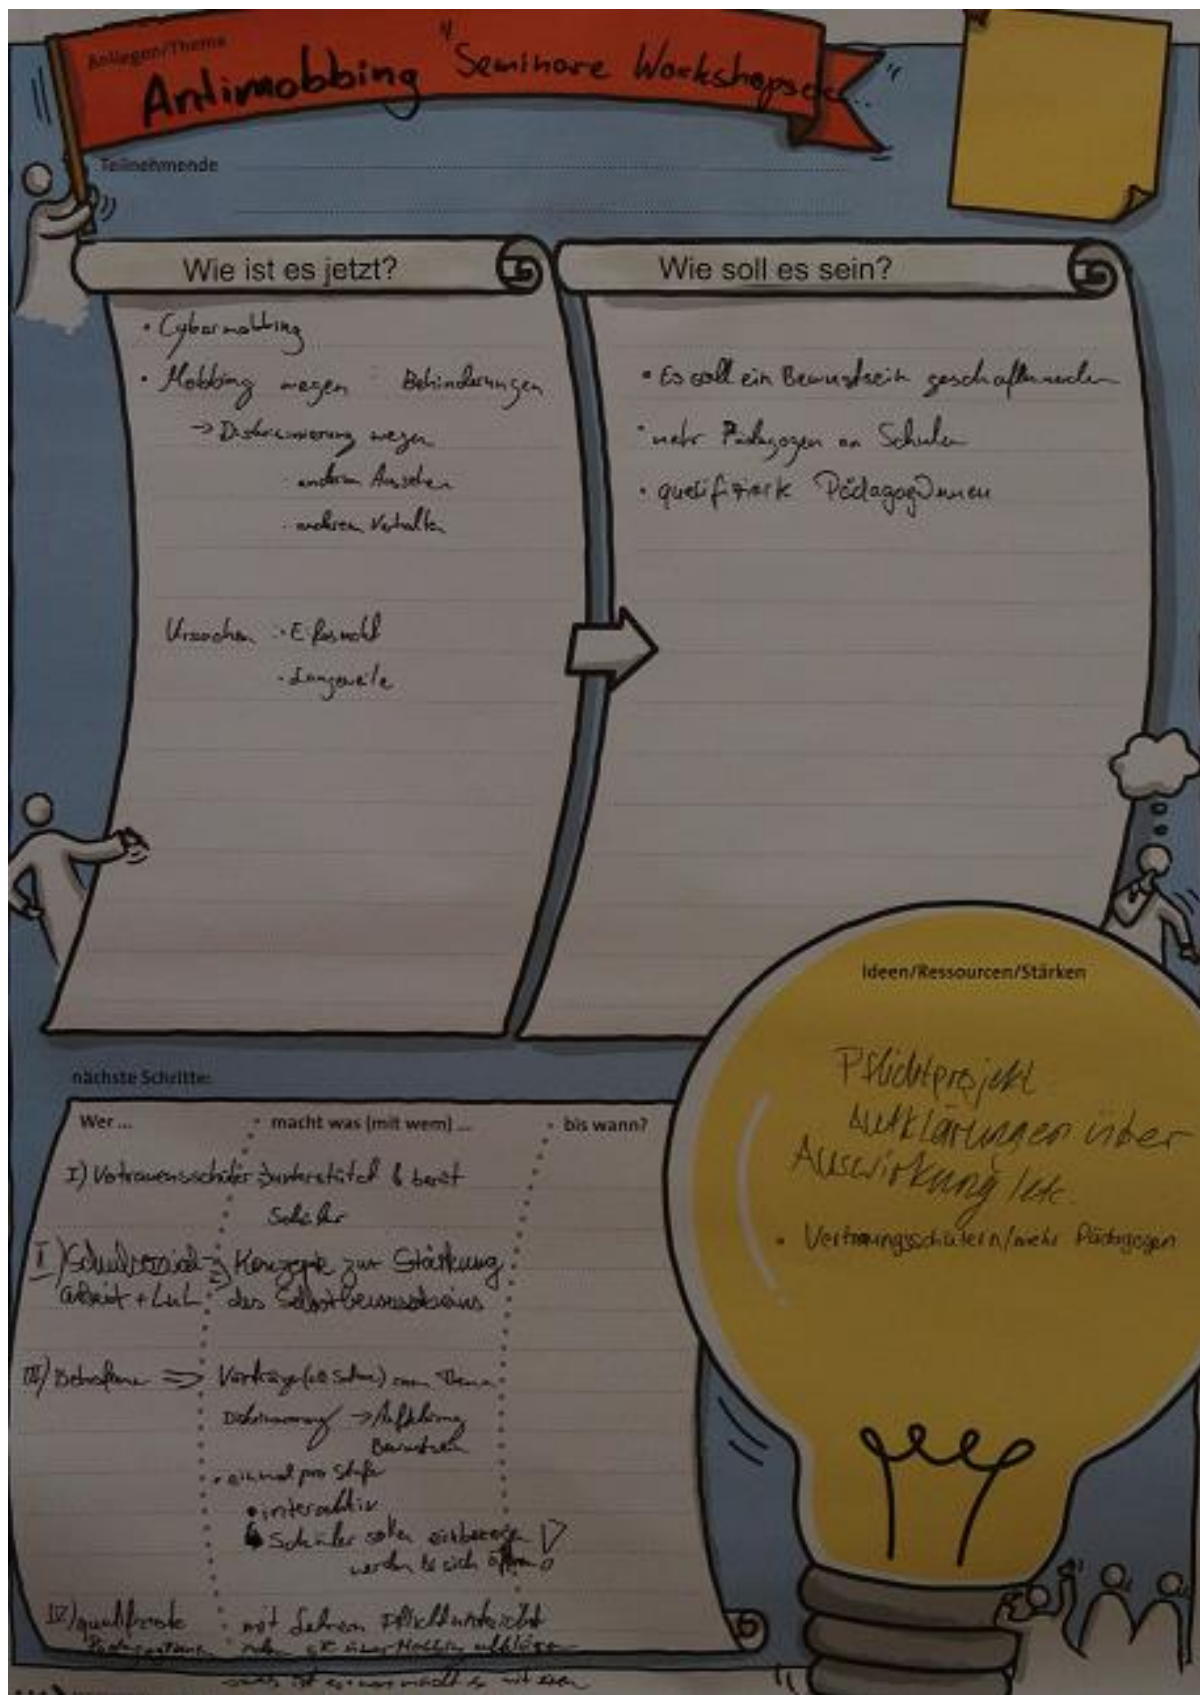 Anliegen/Thema
Antimobbing Seminare Workshops
Teilnehmende
Wie ist es jetzt?
• Cybermobbing
• Mobbing wegen Behinderungen
→ Diskriminierung wegen
· anderem Aussehen
· anderem Verhalten
Ursachen:
· Langeweile
Wie soll es sein?
• Es soll ein Bewustsein geschaffen werden
• mehr Pädagogen an Schulen
• qualifizierte PädagogInnen
Ideen/Ressourcen/Stärken
Pflichtprojekt
Aufklärungen über
Auswirkung etc.
• Vertrauungsschülern/mehr Pädagogen
nächste Schritte:
Wer ... macht was (mit wem) ... bis wann?
I) Vertrauensschüler unterstützt & berät
Schüler
II) Schulsozial- Konzepte zur Stärkung
arbeit + LuL des Selbstbewusstseins
III) Betroffene ⇒ Vorträge zum Thema
Diskriminierung → Aufklärung
Bewustsein
• einmal pro Stufe
• interaktiv
↳ Schüler sollen einbezogen
werden & sich öffnen
IV) qualifizierte mit Lehrern Pflichtunterricht
über Mobbing aufklären